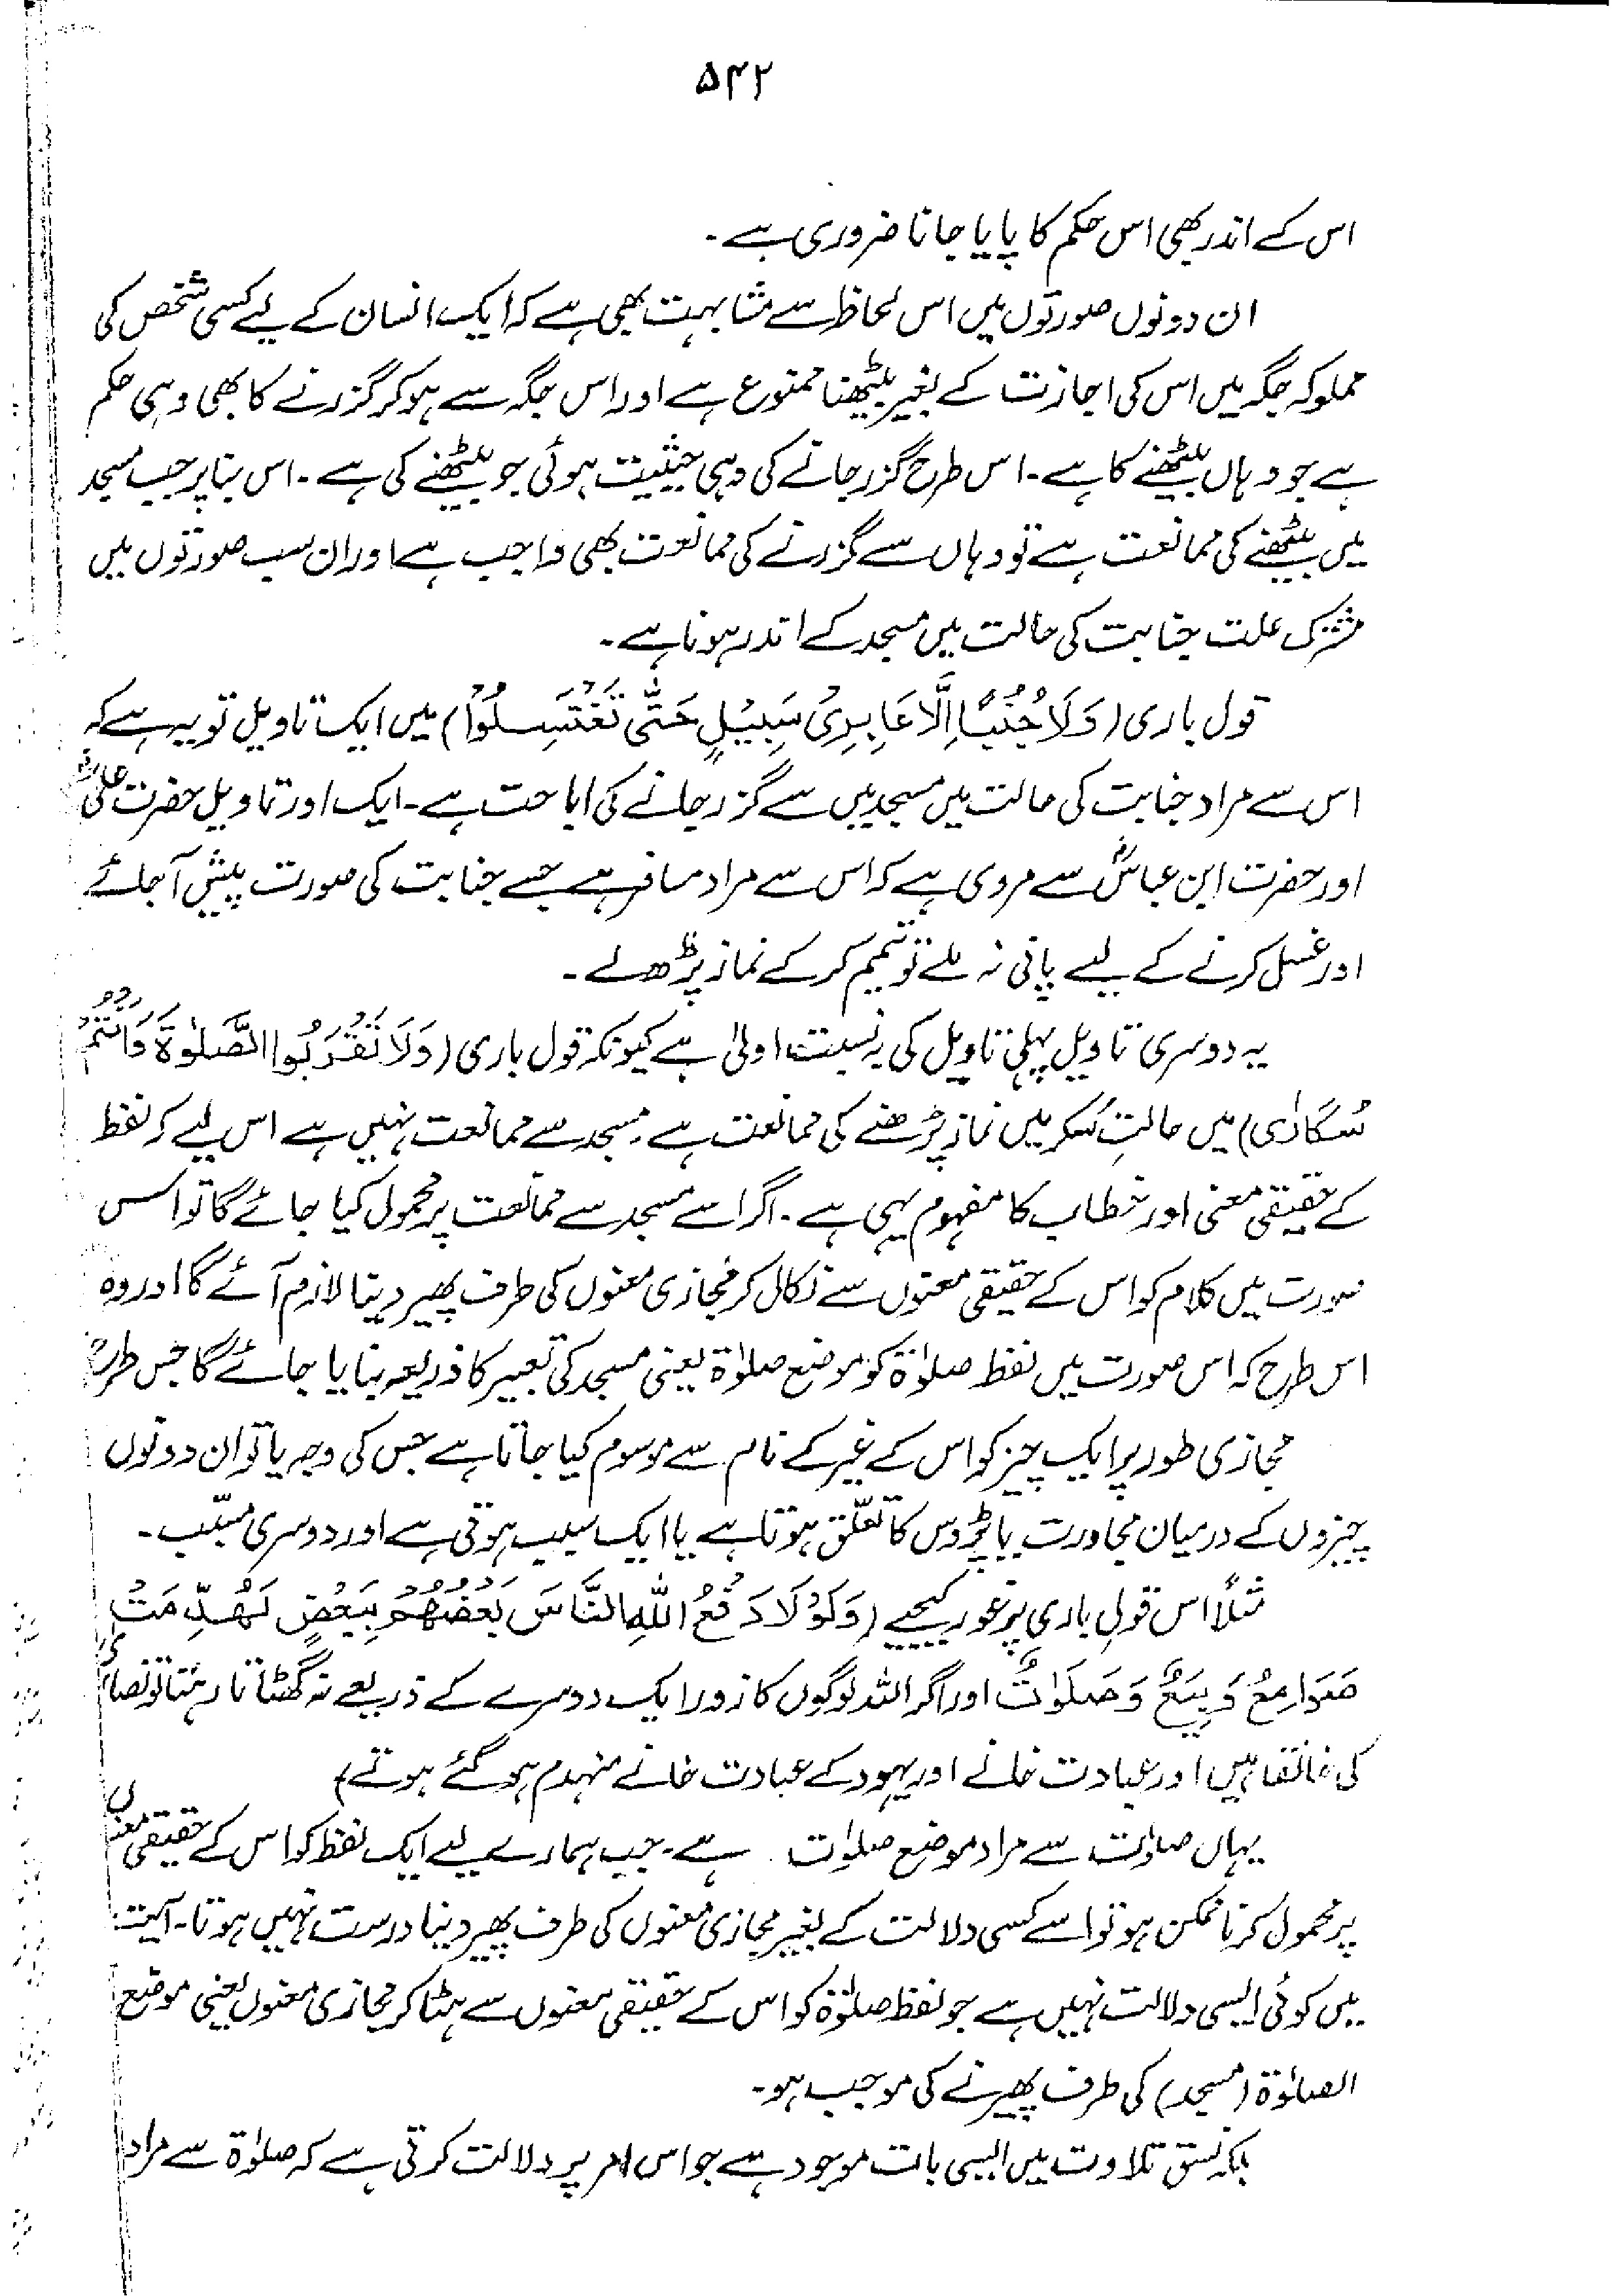 ۵۴۲
اس کے اندر بھی اس حکم کا پایا جانا ضروری ہے۔
ان دونوں صورتوں میں اس لحاظ سے مشابہت بھی ہے کہ ایک انسان کے لیے کسی شخص کی
مملوکہ جگہ میں اس کی اجازت کے بغیر بیٹھنا ممنوع ہے اور اس جگہ سے ہو کر گزرنے کا بھی وہی حکم
ہے جو وہاں بیٹھنے کا ہے۔ اس طرح گزر جانے کی وہی حیثیت ہوئی جو بیٹھنے کی ہے۔ اس بنا پر جب مسجد
میں بیٹھنے کی ممانعت ہے تو وہاں سے گزرنے کی ممانعت بھی واجب ہے اور ان سب صورتوں میں
مشترک علت جنابت کی حالت میں مسجد کے اندر ہونا ہے۔
قول باری (وَلَا جُنُبًا اِلَّا عَابِرِیْ سَبِیْلٍ حَتّٰی تَغْتَسِلُوْا) میں ایک تاویل تو یہ ہے کہ
اس سے مراد جنابت کی حالت میں مسجد میں سے گزر جانے کی اباحت ہے۔ ایک اور تاویل حضرت علیؓ
اور حضرت ابن عباسؓ سے مروی ہے کہ اس سے مراد مسافر ہے جسے جنابت کی صورت پیش آ جائے
اور غسل کرنے کے لیے پانی نہ ملے تو تیمم کر کے نماز پڑھ لے۔
یہ دوسری تاویل پہلی تاویل کی بہ نسبت اولیٰ ہے کیونکہ قول باری (وَلَا تَقْرَبُوا الصَّلٰوۃَ وَاَنْتُمْ
سُکَارٰی) میں حالتِ سُکر میں نماز پڑھنے کی ممانعت ہے۔ مسجد سے ممانعت نہیں ہے اس لیے کہ لفظ
کے حقیقی معنی اور خطاب کا مفہوم یہی ہے۔ اگر اسے مسجد سے ممانعت پر محمول کیا جائے گا تو اس
صورت میں کلام کو اس کے حقیقی معنوں سے نکال کر مجازی معنوں کی طرف پھیر دینا لازم آئے گا اور وہ
اس طرح کہ اس صورت میں لفظ صلوٰۃ کو موضع صلوٰۃ یعنی مسجد کی تعبیر کا ذریعہ بنایا جائے گا جس طرح
مجازی طور پر ایک چیز کو اس کے غیر کے نام سے موسوم کیا جاتا ہے جس کی وجہ یا تو ان دونوں
چیزوں کے درمیان مجاورت یا پڑوس کا تعلّق ہوتا ہے یا ایک سبب ہوتی ہے اور دوسری مسبّب۔
مثلاً اس قولِ باری پر غور کیجیے (وَلَوْلَا دَفْعُ اللّٰہِ النَّاسَ بَعْضَھُمْ بِبَعْضٍ لَھُدِّمَتْ
صَوَامِعُ وَبِیَعٌ وَصَلَوَاتٌ اور اگر اللہ لوگوں کا زور ایک دوسرے کے ذریعے نہ گھٹاتا رہتا تو نصاریٰ
کی خانقاہیں اور عبادت خانے اور یہود کے عبادت خانے منہدم ہو گئے ہوتے)
یہاں صلوٰت سے مراد موضع صلوٰت ہے۔ جب ہمارے لیے ایک لفظ کو اس کے حقیقی معنوں
پر محمول کرنا ممکن ہو تو اسے کسی دلالت کے بغیر مجازی معنوں کی طرف پھیر دینا درست نہیں ہوتا۔ آیت
میں کوئی ایسی دلالت نہیں ہے جو لفظ صلوٰۃ کو اس کے حقیقی معنوں سے ہٹا کر مجازی معنوں یعنی موضع
الصلوٰۃ (مسجد) کی طرف پھیرنے کی موجب ہو۔
بلکہ نسق تلاوت میں ایسی بات موجود ہے جو اس امر پر دلالت کرتی ہے کہ صلوٰۃ سے مراد